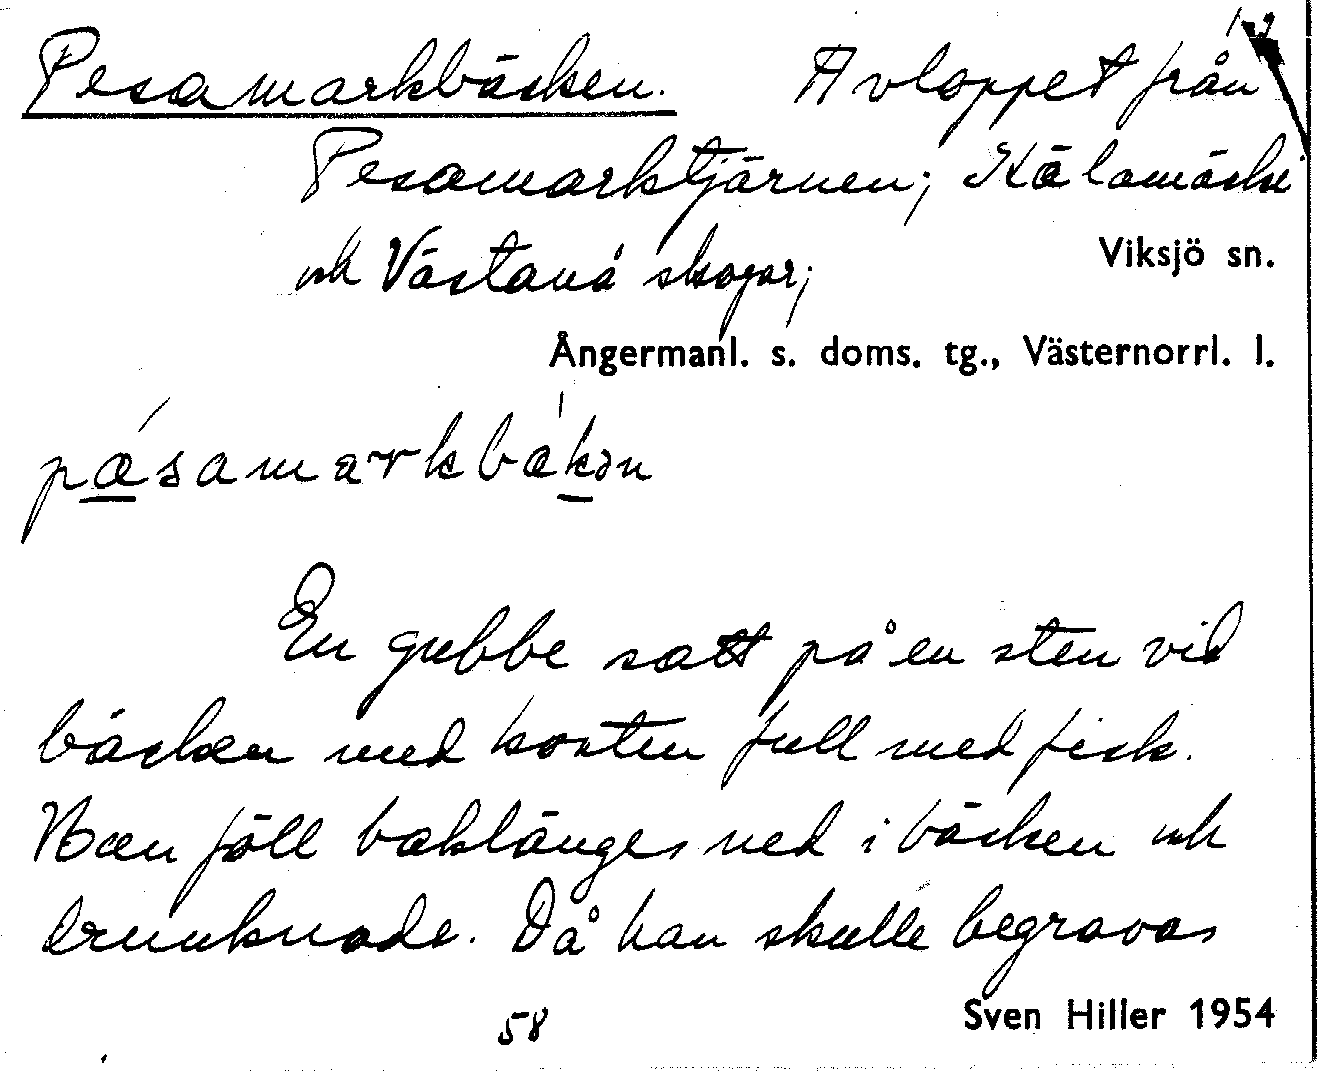 Pesamarkbäcken. Avloppet från
Pesamarktjärnen; Kälamärke
och Västanå skogar;
Viksjö sn.
Ångermanl. s. doms. tg., Västernorrl. l.
pæsamarkbækən
En gubbe satt på en sten vid
bäcken med konten full med fisk.
Han föll baklänges ned i bäcken och
drunknade. Då han skulle begravas
58
Sven Hiller 1954